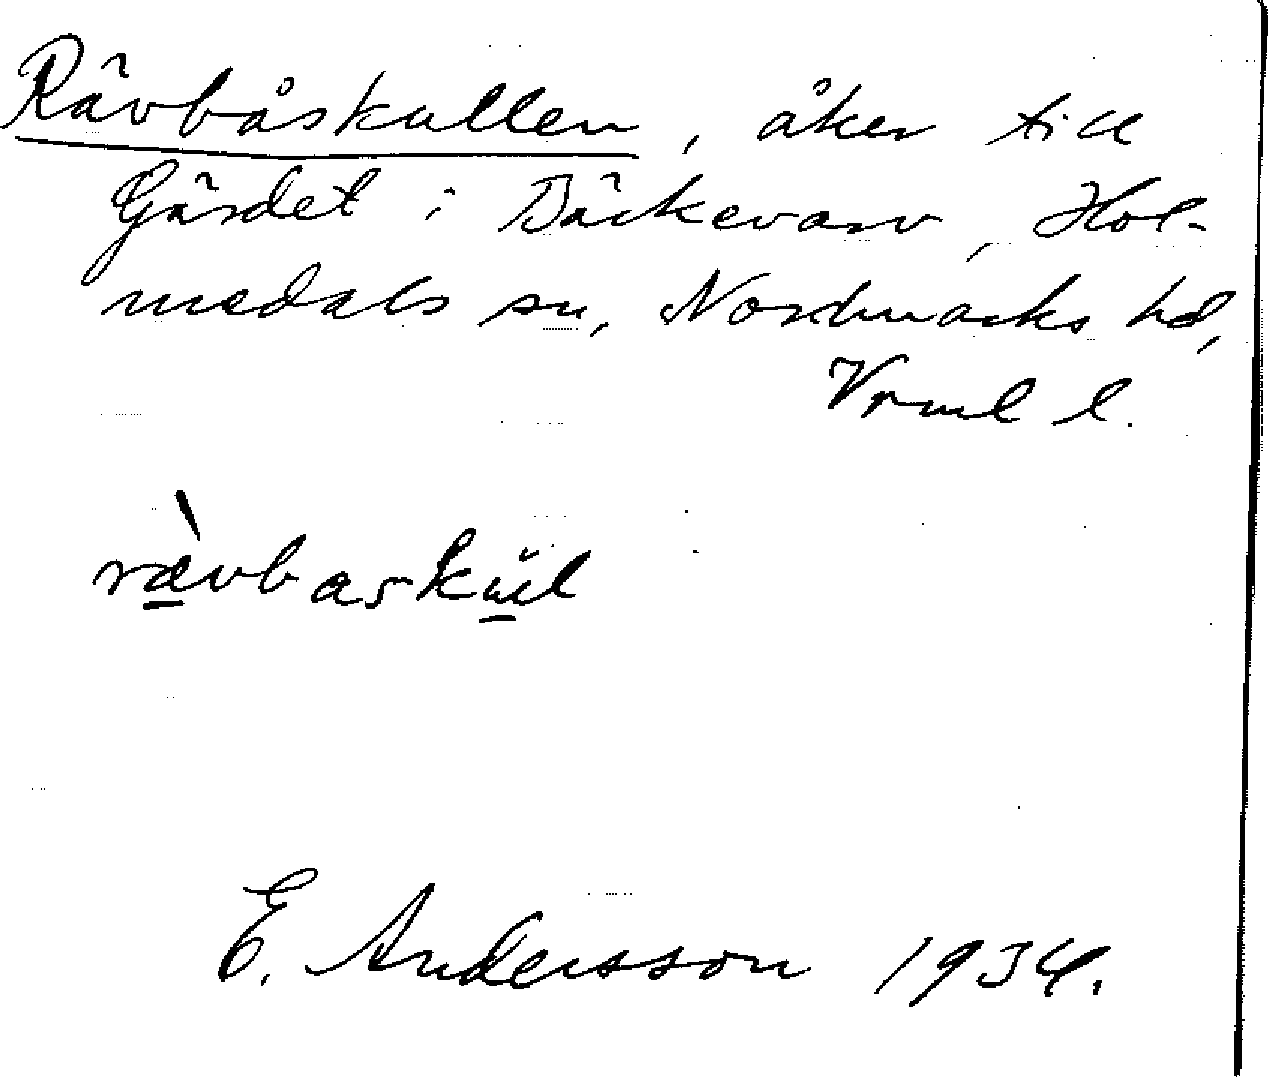 Rävbåskullen, åker till
Gärdet i Bäckevarv, Hol-
medals sn, Nordmarks hd,
Vrml l.
rævbaskul
E. Andersson 1934.